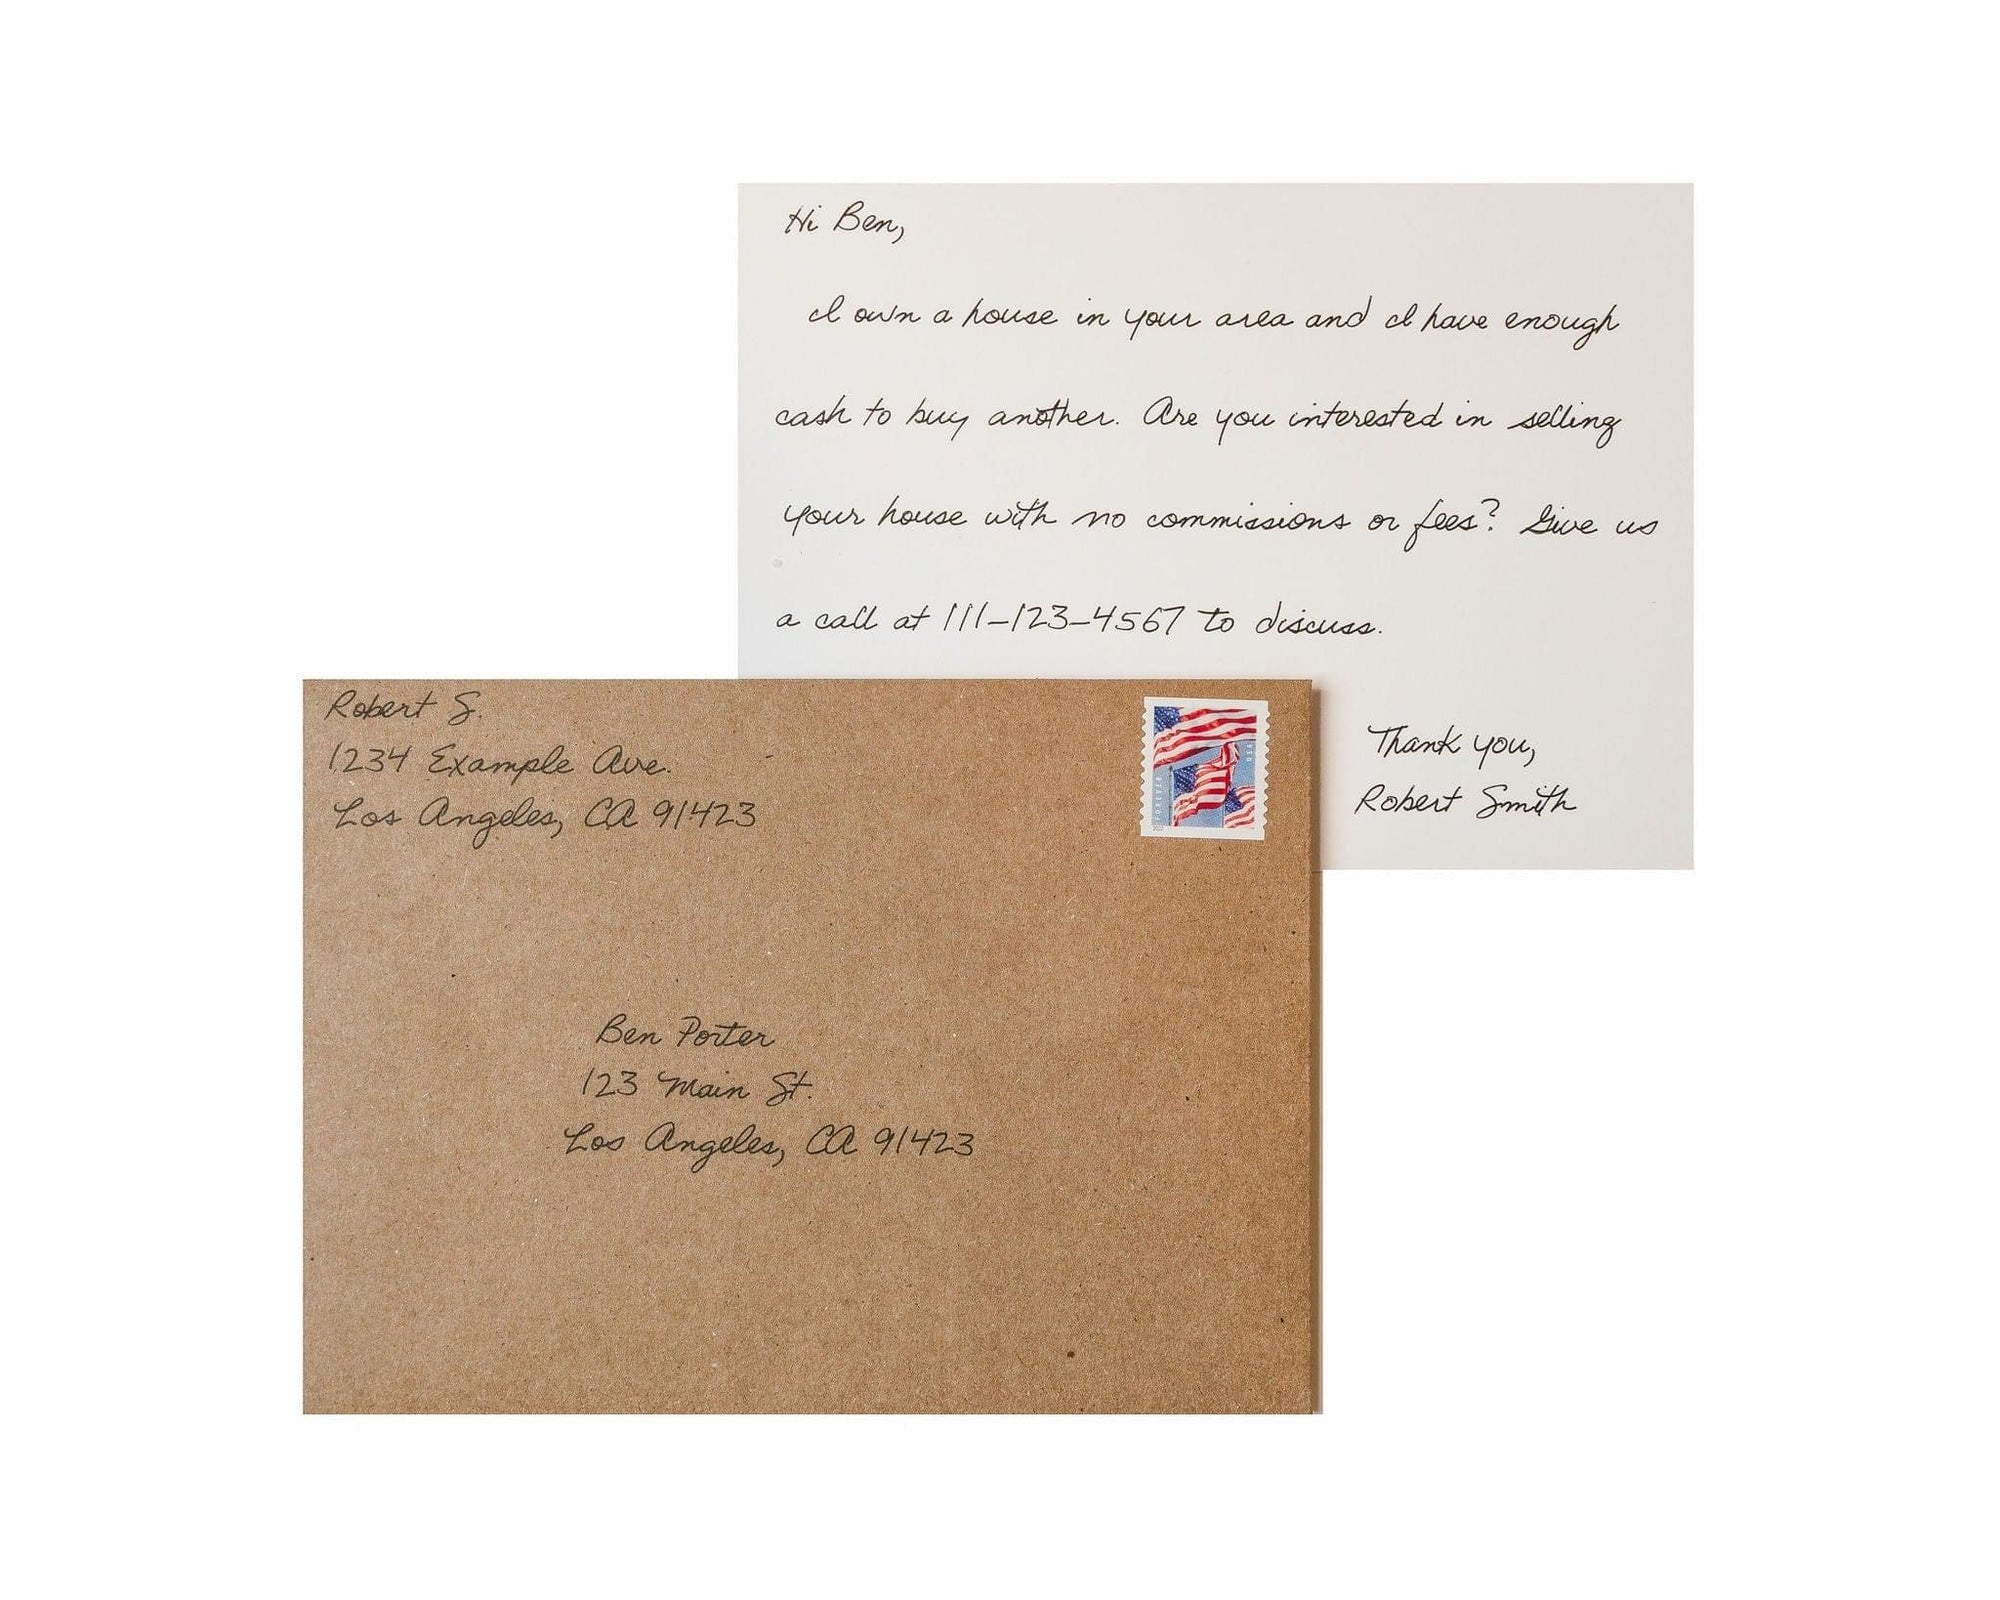 Hi Ben,
I own a house in your area and I have enough
cash to buy another. Are you interested in selling
your house with no commissions or fees? Give us
a call at 111-123-4567 to discuss.
Thank you,
Robert Smith
Robert S.
1234 Example Ave.
Los Angeles, CA 91423
FOREVER
USA
Ben Porter
123 Main St.
Los Angeles, CA 91423